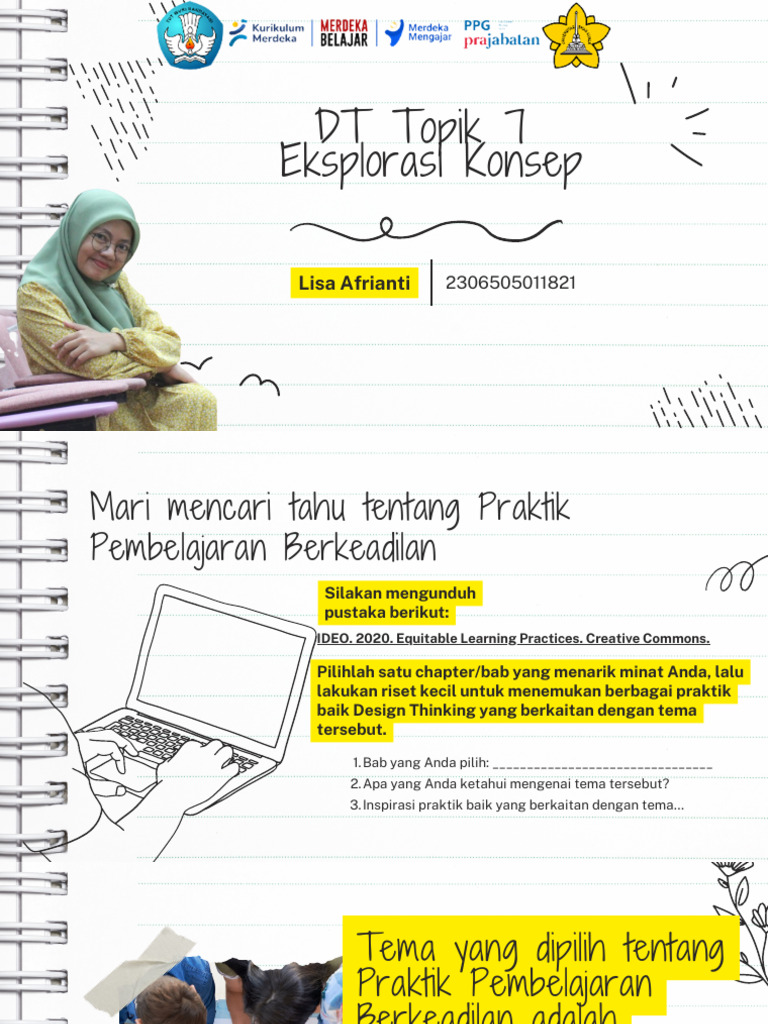 Kurikulum
Merdeka
MERDEKA
BELAJAR
Merdeka
Mengajar
PPG
prajabatan
DT Topik 7
Eksplorasi Konsep
Lisa Afrianti
2306505011821
Mari mencari tahu tentang Praktik
Pembelajaran Berkeadilan
Silakan mengunduh
pustaka berikut:
IDEO. 2020. Equitable Learning Practices. Creative Commons.
Pilihlah satu chapter/bab yang menarik minat Anda, lalu
lakukan riset kecil untuk menemukan berbagai praktik
baik Design Thinking yang berkaitan dengan tema
tersebut.
1. Bab yang Anda pilih: ________________________________
2. Apa yang Anda ketahui mengenai tema tersebut?
3. Inspirasi praktik baik yang berkaitan dengan tema...
Tema yang dipilih tentang
Praktik Pembelajaran
Berkeadilan adalah